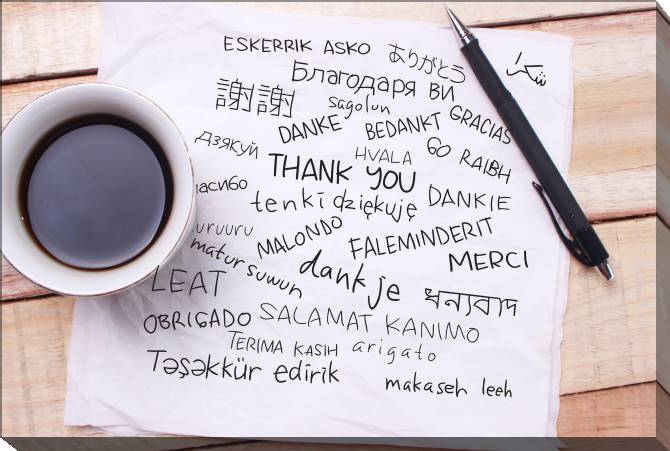 ESKERRIK ASKO
ありがとう
شكرا
Благодаря ви
謝謝
sagolun
DANKE
BEDANKT
GRACIAS
дзякуй
HVALA
GO RAIBH
THANK YOU
асибо
tenki
dziękuję
DANKIE
uruuru
MALONDO
FALEMINDERIT
matur suwun
MERCI
LEAT
dank je
ধন্যবাদ
OBRIGADO
SALAMAT
KANIMO
TERIMA KASIH
arigato
Təşəkkür edirik
makaseh leeh